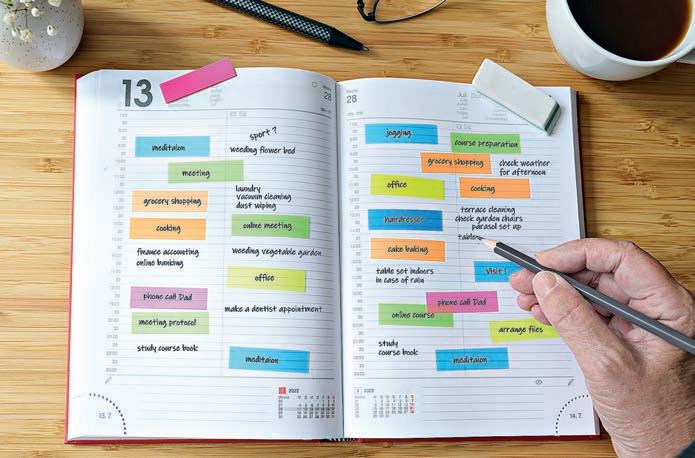 13
28
28
Juli
meditaion
sport ?
weeding flower bed
meeting
laundry
vacuum cleaning
dust wiping
grocery shopping
cooking
online meeting
finance accounting
online banking
weeding vegetable garden
office
phone call Dad
make a dentist appointment
meeting protocol
study course book
meditaion
2022
13. 7.
jogging
course preparation
grocery shopping
check weather
for afternoon
office
cooking
terrace cleaning
check garden chairs
parasol set up
hairdresser
table
cake baking
table set indoors
in case of rain
Visit !
phone call Dad
online course
arrange files
study
course book
meditaion
2022
14. 7.